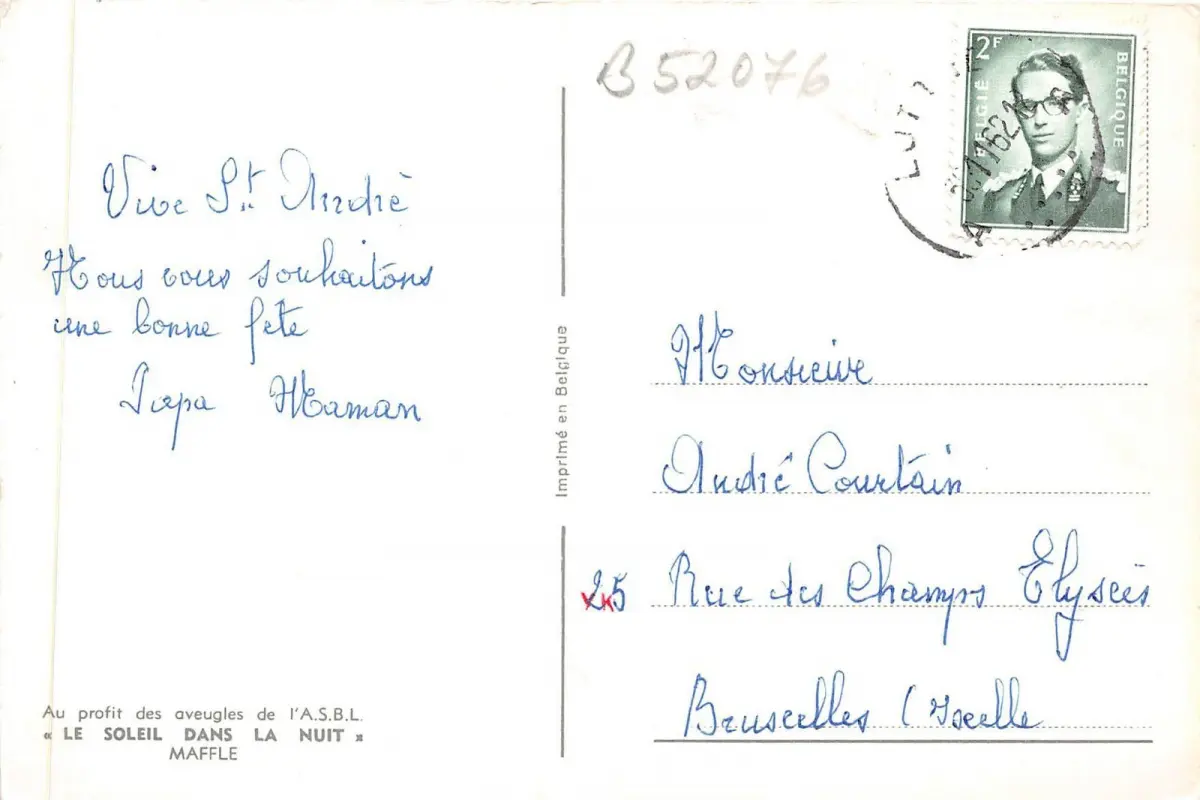 B 52076
2F
BELGIË
BELGIQUE
A
Vive St. André
Nous vous souhaitons
une bonne fête
Papa Maman
Imprimé en Belgique
Monsieur
André Courtain
25 Rue des Champs Elysées
Bruxelles (Ixelle
Au profit des aveugles de l'A.S.B.L.
« LE SOLEIL DANS LA NUIT »
MAFFLE